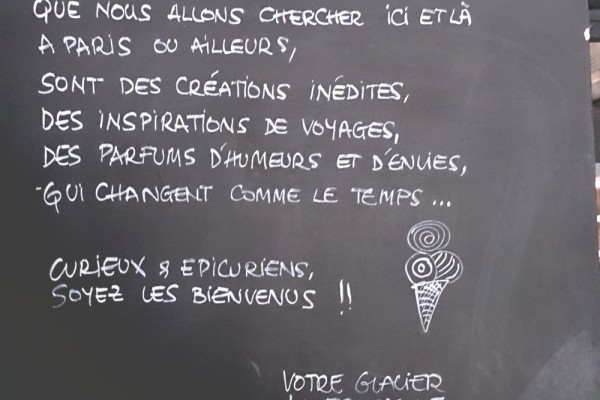 QUE NOUS ALLONS CHERCHER ICI ET LÀ
A PARIS OU AILLEURS,
SONT DES CRÉATIONS INÉDITES,
DES INSPIRATIONS DE VOYAGES,
DES PARFUMS D'HUMEURS ET D'ENVIES,
QUI CHANGENT COMME LE TEMPS...
CURIEUX & EPICURIENS,
SOYEZ LES BIENVENUS !!
VOTRE GLACIER